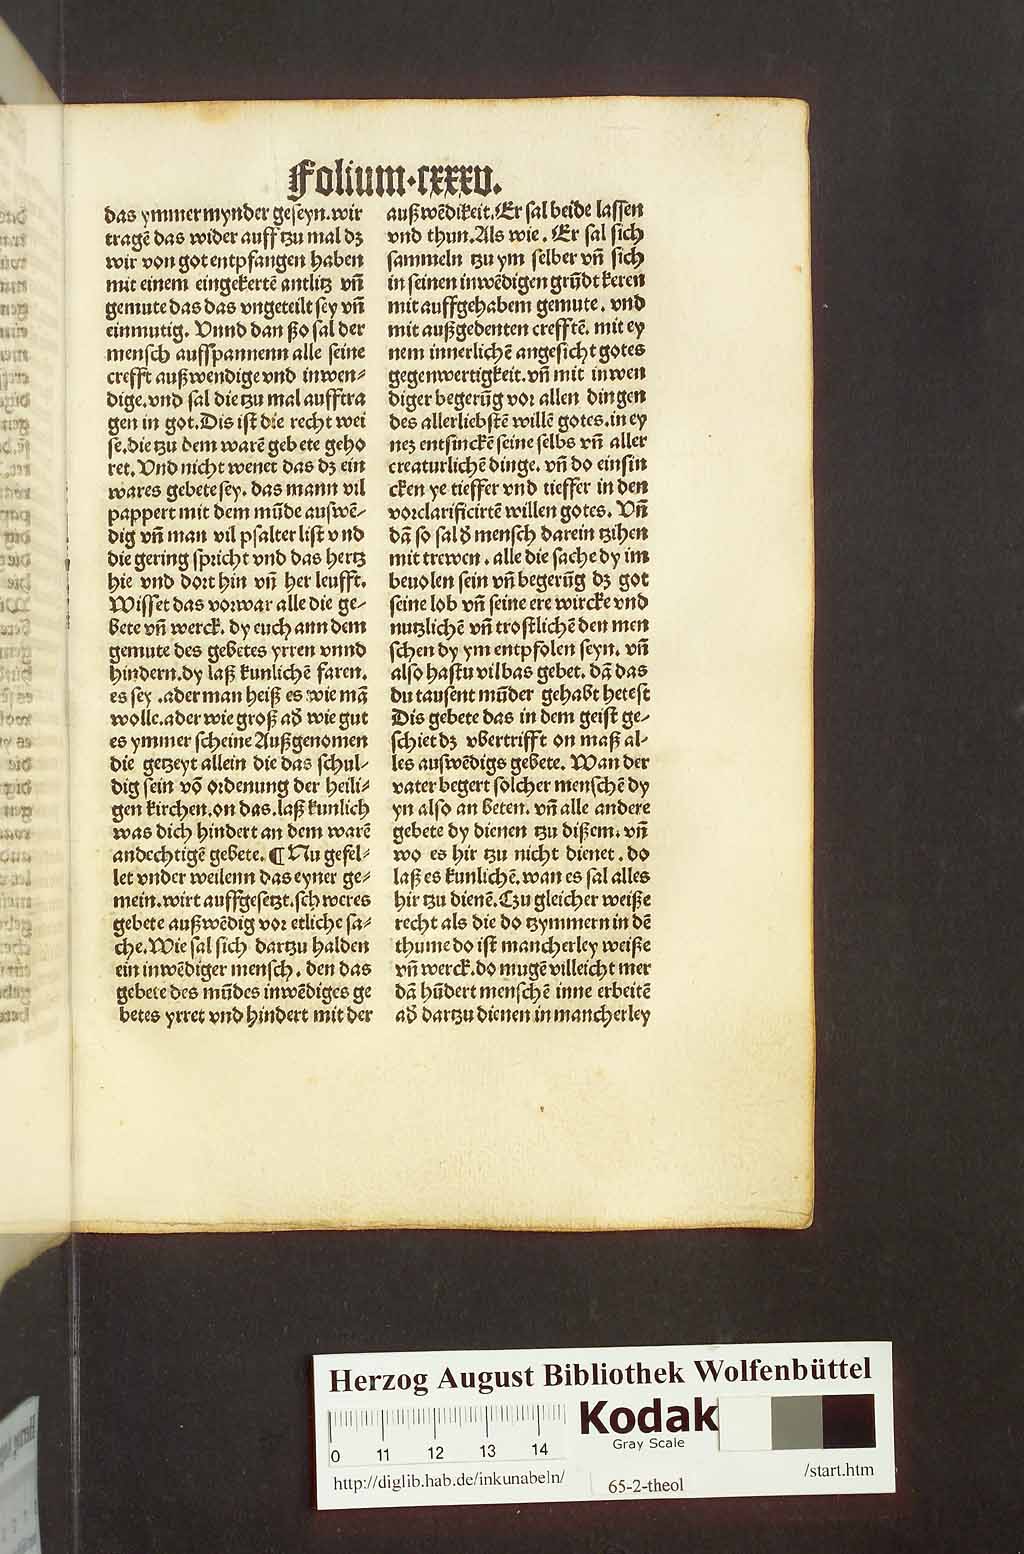 Folium·cxxxv.
das ymmer mynder geseyn.wir
tragē das wider auff tzu mal dʒ
wir von got entpfangen haben
mit einem eingekertē antlitz vñ
gemute das das vngeteilt sey vñ
einmutig. Vnnd dan ßo sal der
mensch auffspannenn alle seine
crefft außwendige vnd inwen-
dige.vnd sal die tzu mal aufftra
gen in got.Dis ist die recht wei
se.die tzu dem warē gebete geho
ret. Vnd nicht wenet das dʒ ein
wares gebete sey. das mann vil
pappert mit dem mūde auswē-
dig vñ man vil psalter list vnd
die gering spricht vnd das hertz
hie vnd dort hin vñ her leufft.
Wisset das vorwar alle die ge-
bete vñ werck. dy euch ann dem
gemute des gebetes yrren vnnd
hindern.dy laß kunlichē faren.
es sey .ader man heiß es wie mā
wolle.ader wie groß ad̕ wie gut
es ymmer scheine Außgenomen
die getzeyt allein die das schul-
dig sein vō ordenung der heili-
gen kirchen.on das.laß kunlich
was dich hindert an dem warē
andechtigē gebete. ¶ Nu gefel-
let vnder weilenn das eyner ge-
mein.wirt auffgesetzt.schweres
gebete außwēdig vor etliche sa-
che.Wie sal sich dartzu halden
ein inwēdiger mensch. den das
gebete des mūdes inwēdiges ge
betes yrret vnd hindert mit der
außwēdikeit.Er sal beide lassen
vnd thun.Als wie. Er sal sich
sammeln tzu ym selber vñ sich
in seinen inwēdigen grūdt keren
mit auffgehabem gemute. vnd
mit außgedenten crefftē. mit ey
nem innerlichē angesicht gotes
gegenwertigkeit.vñ mit inwen
diger begerūg vor allen dingen
des allerliebstē willē gotes.in ey
neʒ entsinckē seine selbs vñ aller
creaturlichē dinge. vñ do einsin
cken ye tieffer vnd tieffer in den
vorclarificirtē willen gotes. Vñ
dā so sal d̕ mensch darein tzihen
mit trewen. alle die sache dy im
beuolen sein vñ begerūg dʒ got
seine lob vñ seine ere wircke vnd
nutzlichē vñ trostlichē den men
schen dy ym entpfolen seyn. vñ
also hastu vil bas gebet. dā das
du tausent mūder gehabt hetest
Dis gebete das in dem geist ge-
schiet dʒ vbertrifft on maß al-
les auswēdigs gebete. Wan der
vater begert solcher menschē dy
yn also an beten. vñ alle andere
gebete dy dienen tzu dißem. vñ
wo es hir tzu nicht dienet. do
laß es kunlichē.wan es sal alles
hir tzu dienē.Czu gleicher weiße
recht als die do tzymmern in dē
thume do ist mancherley weiße
vñ werck.do mugē villeicht mer
dā hūdert menschē inne erbeitē
ad̕ dartzu dienen in mancherley
Herzog August Bibliothek Wolfenbüttel
0 11 12 13 14
Kodak
Gray Scale
http://diglib.hab.de/inkunabeln/
65-2-theol
/start.htm